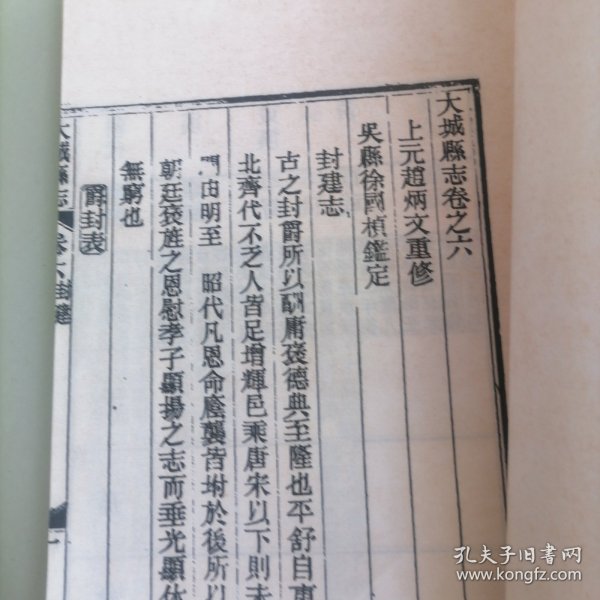 大城縣志卷之六
上元趙炳文重修
吳縣徐國楨鑑定
封建志
古之封爵所以酬庸褒德典至隆也平舒自
北齊代不乏人皆足增輝邑乘唐宋以下則
由明至 昭代凡恩命廕襲皆坿於後所以
朝廷褒旌之恩慰孝子顯揚之志而垂光顯休
無窮也
爵封表
大城縣志
卷六封建
孔夫子旧书网
www.kongfz.com